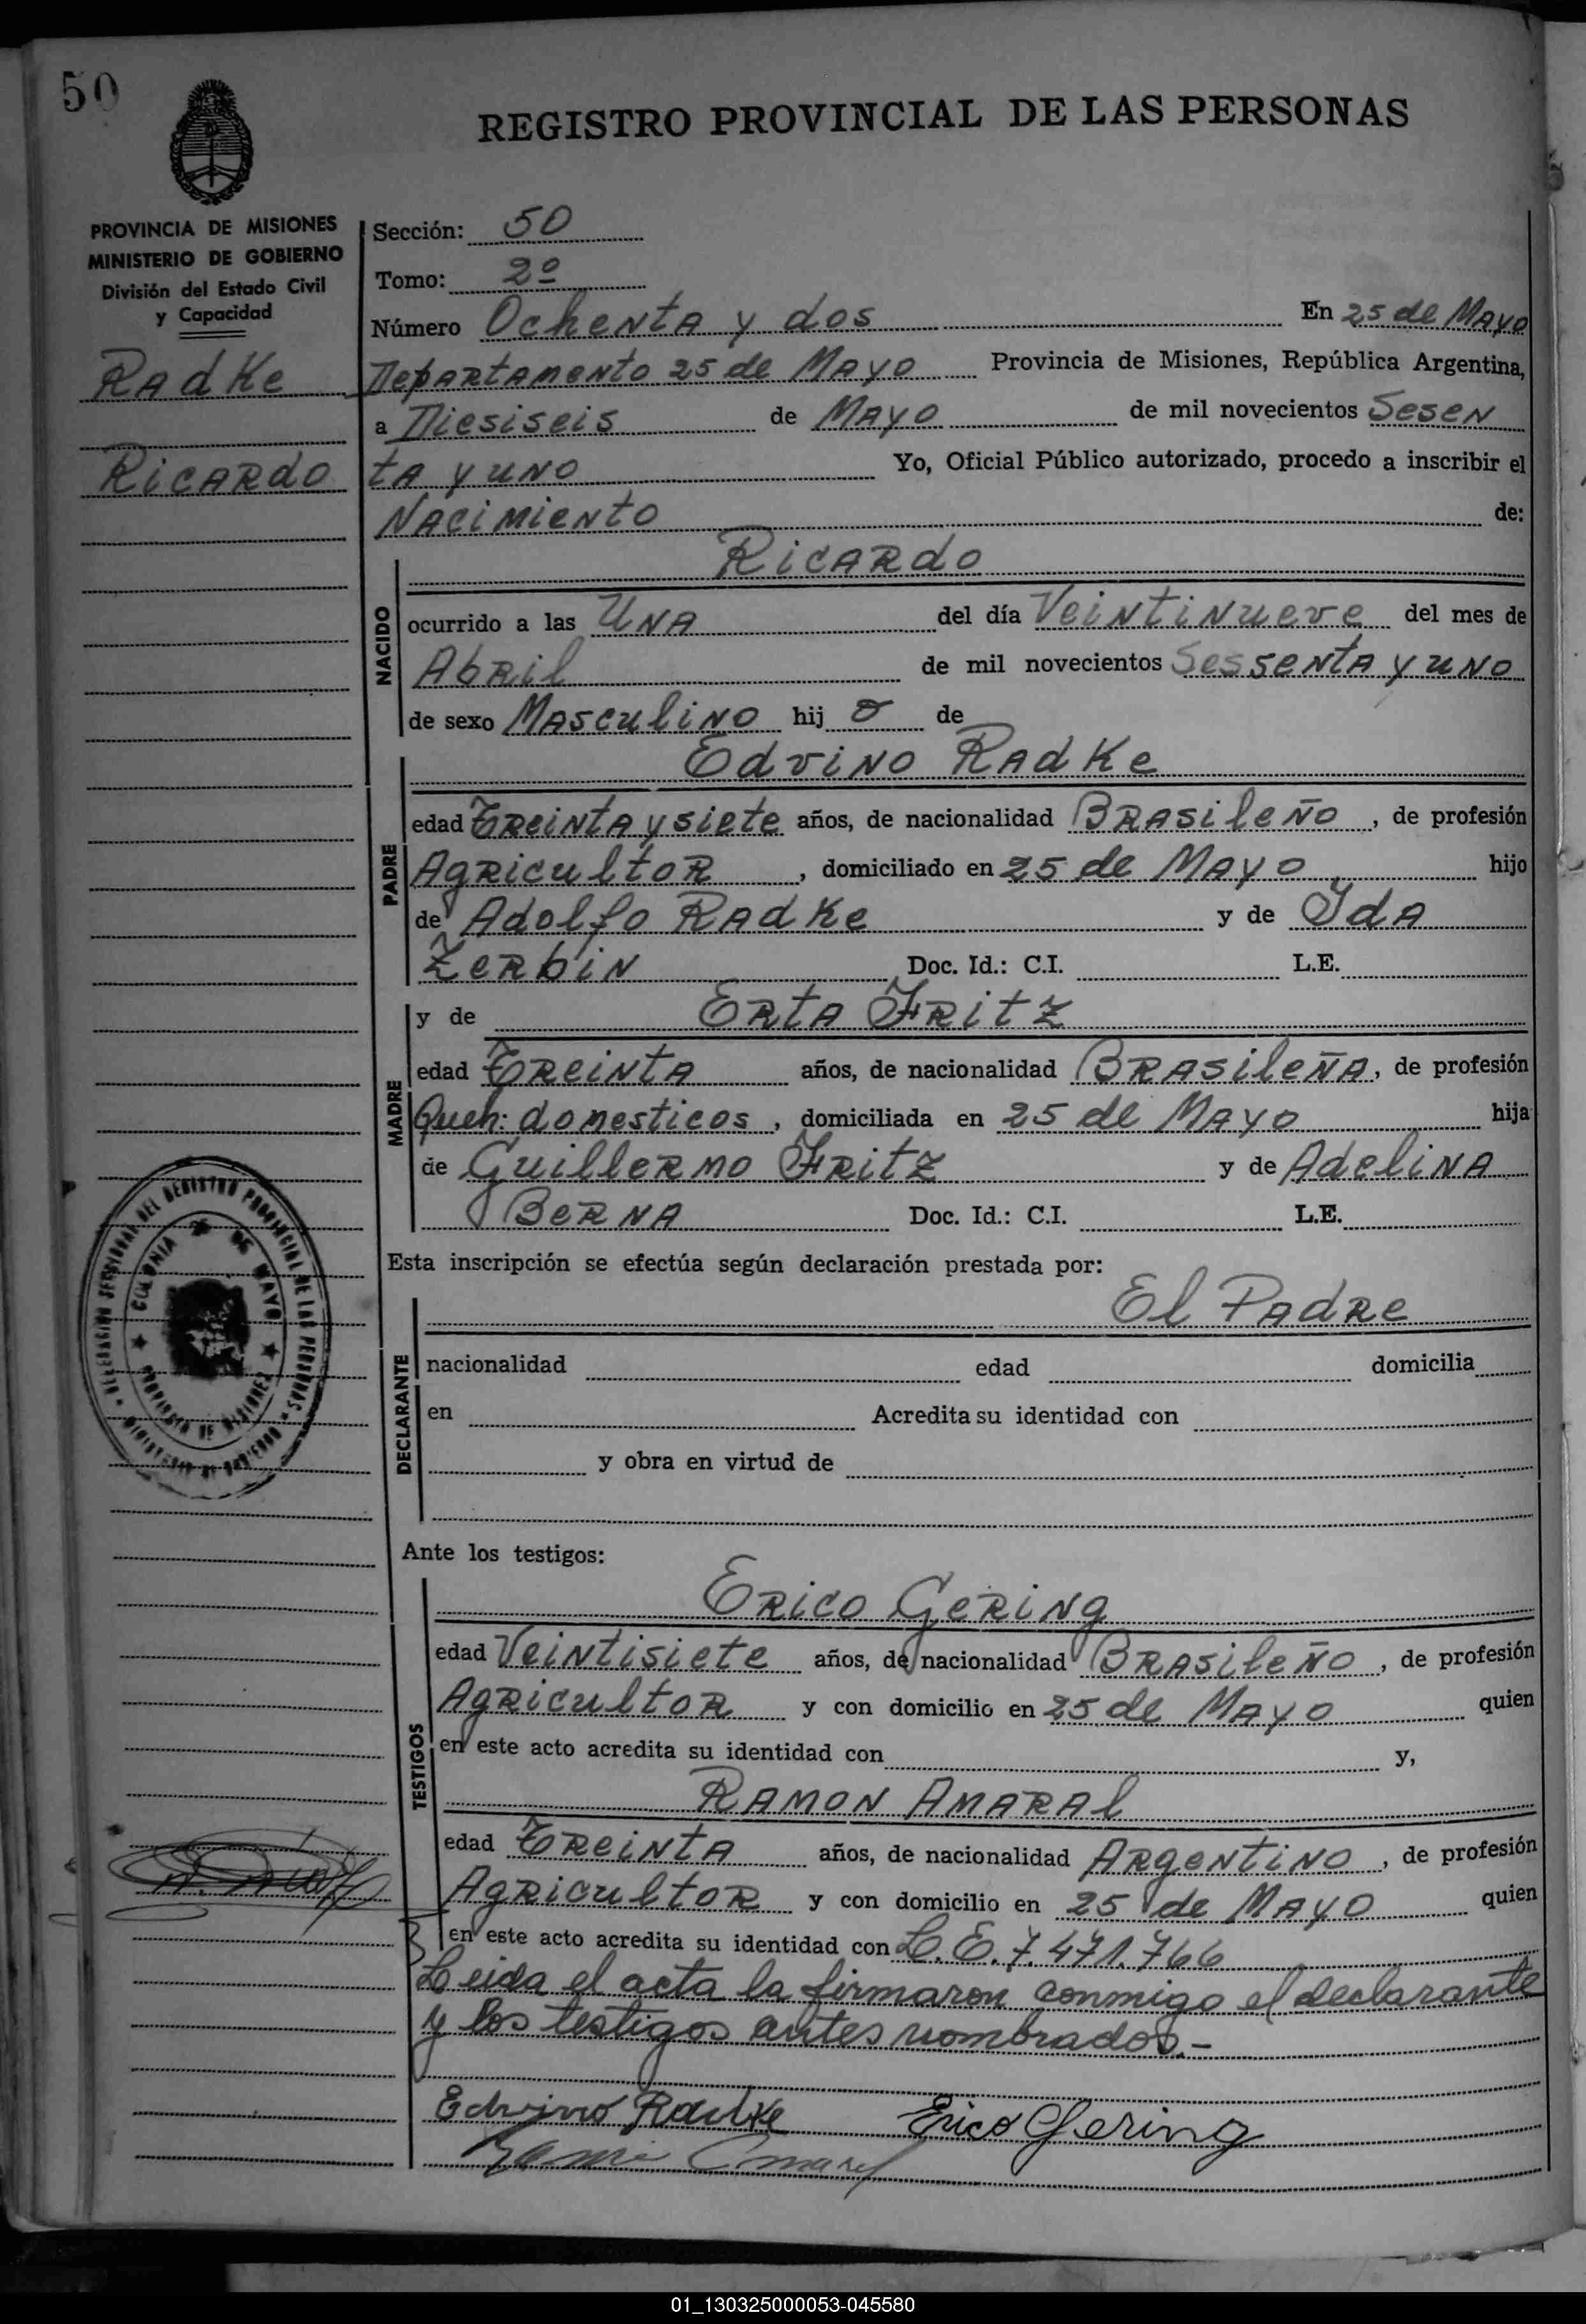 50
REGISTRO PROVINCIAL DE LAS PERSONAS
PROVINCIA DE MISIONES
MINISTERIO DE GOBIERNO
División del Estado Civil
y Capacidad
Radke
Ricardo
Sección: 50
Tomo: 2º
Número Ochenta y dos En 25 de Mayo
Departamento 25 de Mayo Provincia de Misiones, República Argentina,
a Diesiseis de Mayo de mil novecientos Sesen
ta y uno Yo, Oficial Público autorizado, procedo a inscribir el
Nacimiento de:
NACIDO
Ricardo
ocurrido a las Una del día Veintinueve del mes de
Abril de mil novecientos Sessenta y uno
de sexo Masculino hij o de
PADRE
Edvino Radke
edad Treinta y siete años, de nacionalidad Brasileño, de profesión
Agricultor, domiciliado en 25 de Mayo hijo
de Adolfo Radke y de Ida
Zerbin Doc. Id.: C.I. L.E.
MADRE
y de Erta Fritz
edad Treinta años, de nacionalidad Brasileña, de profesión
Queh: domesticos, domiciliada en 25 de Mayo hija
de Guillermo Fritz y de Adelina
Berna Doc. Id.: C.I. L.E.
Esta inscripción se efectúa según declaración prestada por:
DECLARANTE
El Padre
nacionalidad edad domicilia
en Acredita su identidad con
y obra en virtud de
DELEGACIÓN SECCIONAL DEL REGISTRO PROVINCIAL DE LAS PERSONAS
MINISTERIO DE GOBIERNO
COLONIA 25 DE MAYO
PROVINCIA DE MISIONES
Ante los testigos:
TESTIGOS
Erico Gering
edad Veintisiete años, de nacionalidad Brasileño, de profesión
Agricultor y con domicilio en 25 de Mayo quien
en este acto acredita su identidad con y,
Ramon Amaral
edad Treinta años, de nacionalidad Argentino, de profesión
Agricultor y con domicilio en 25 de Mayo quien
en este acto acredita su identidad con L.E. 7.471.766
Leida el acta la firmaron conmigo el declarante
y los testigos antes nombrados.-
Edvino Radke Erico Gering
01_130325000053-045580